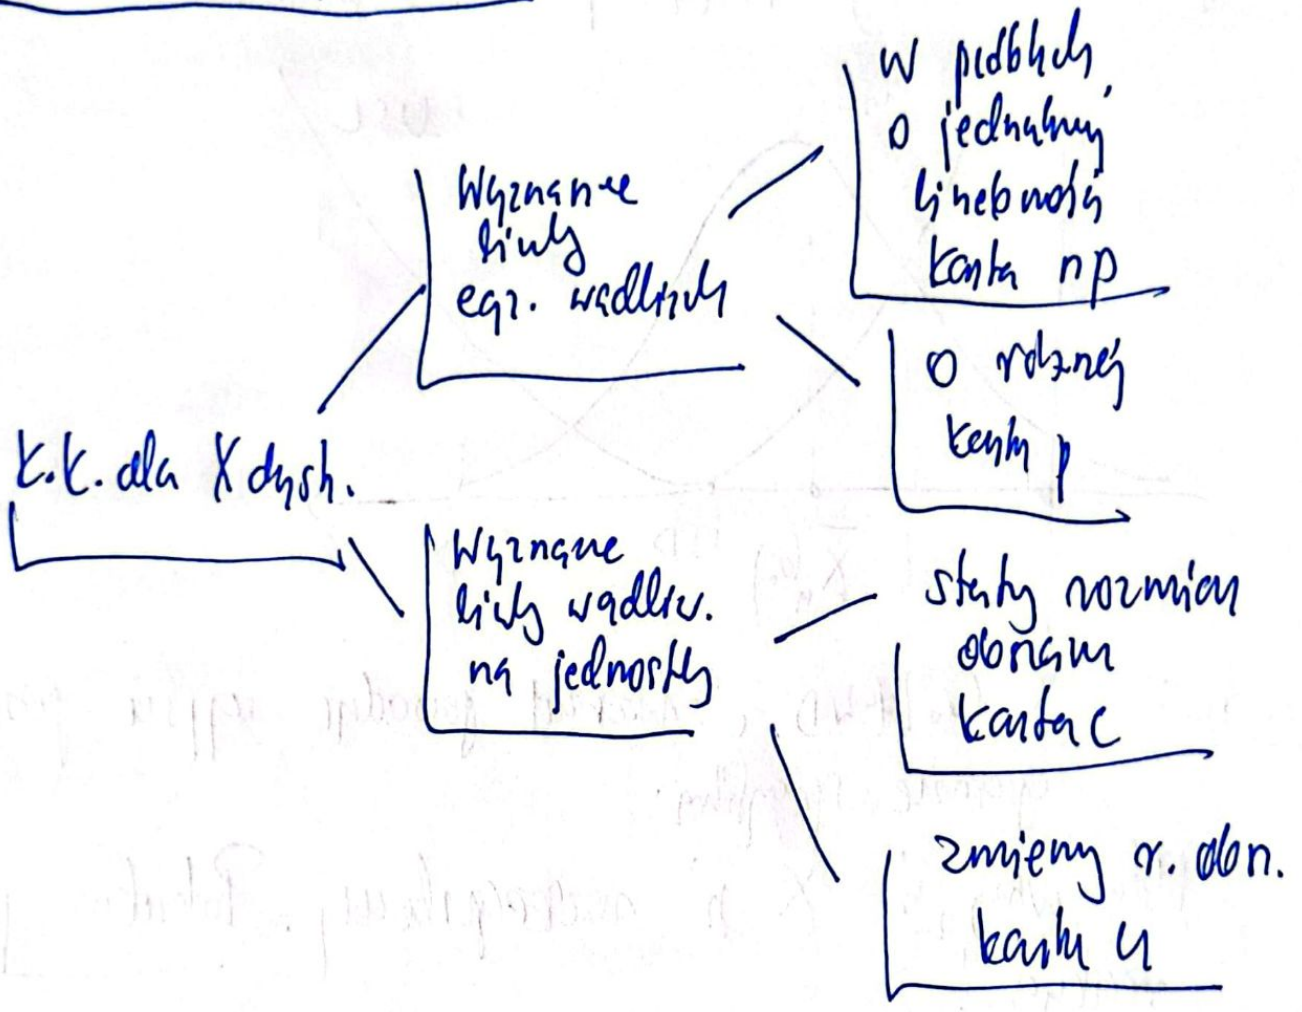 K.K. dla X dysk.
Wyznanie
liczby
egz. wadliwych
w próbkach
o jednakowej
liczebności
karta np
o różnej
karta p
Wyznanie
liczby wadliw.
na jednostkę
stały rozmiar
obszaru
karta c
zmienny r. obsz.
karta u